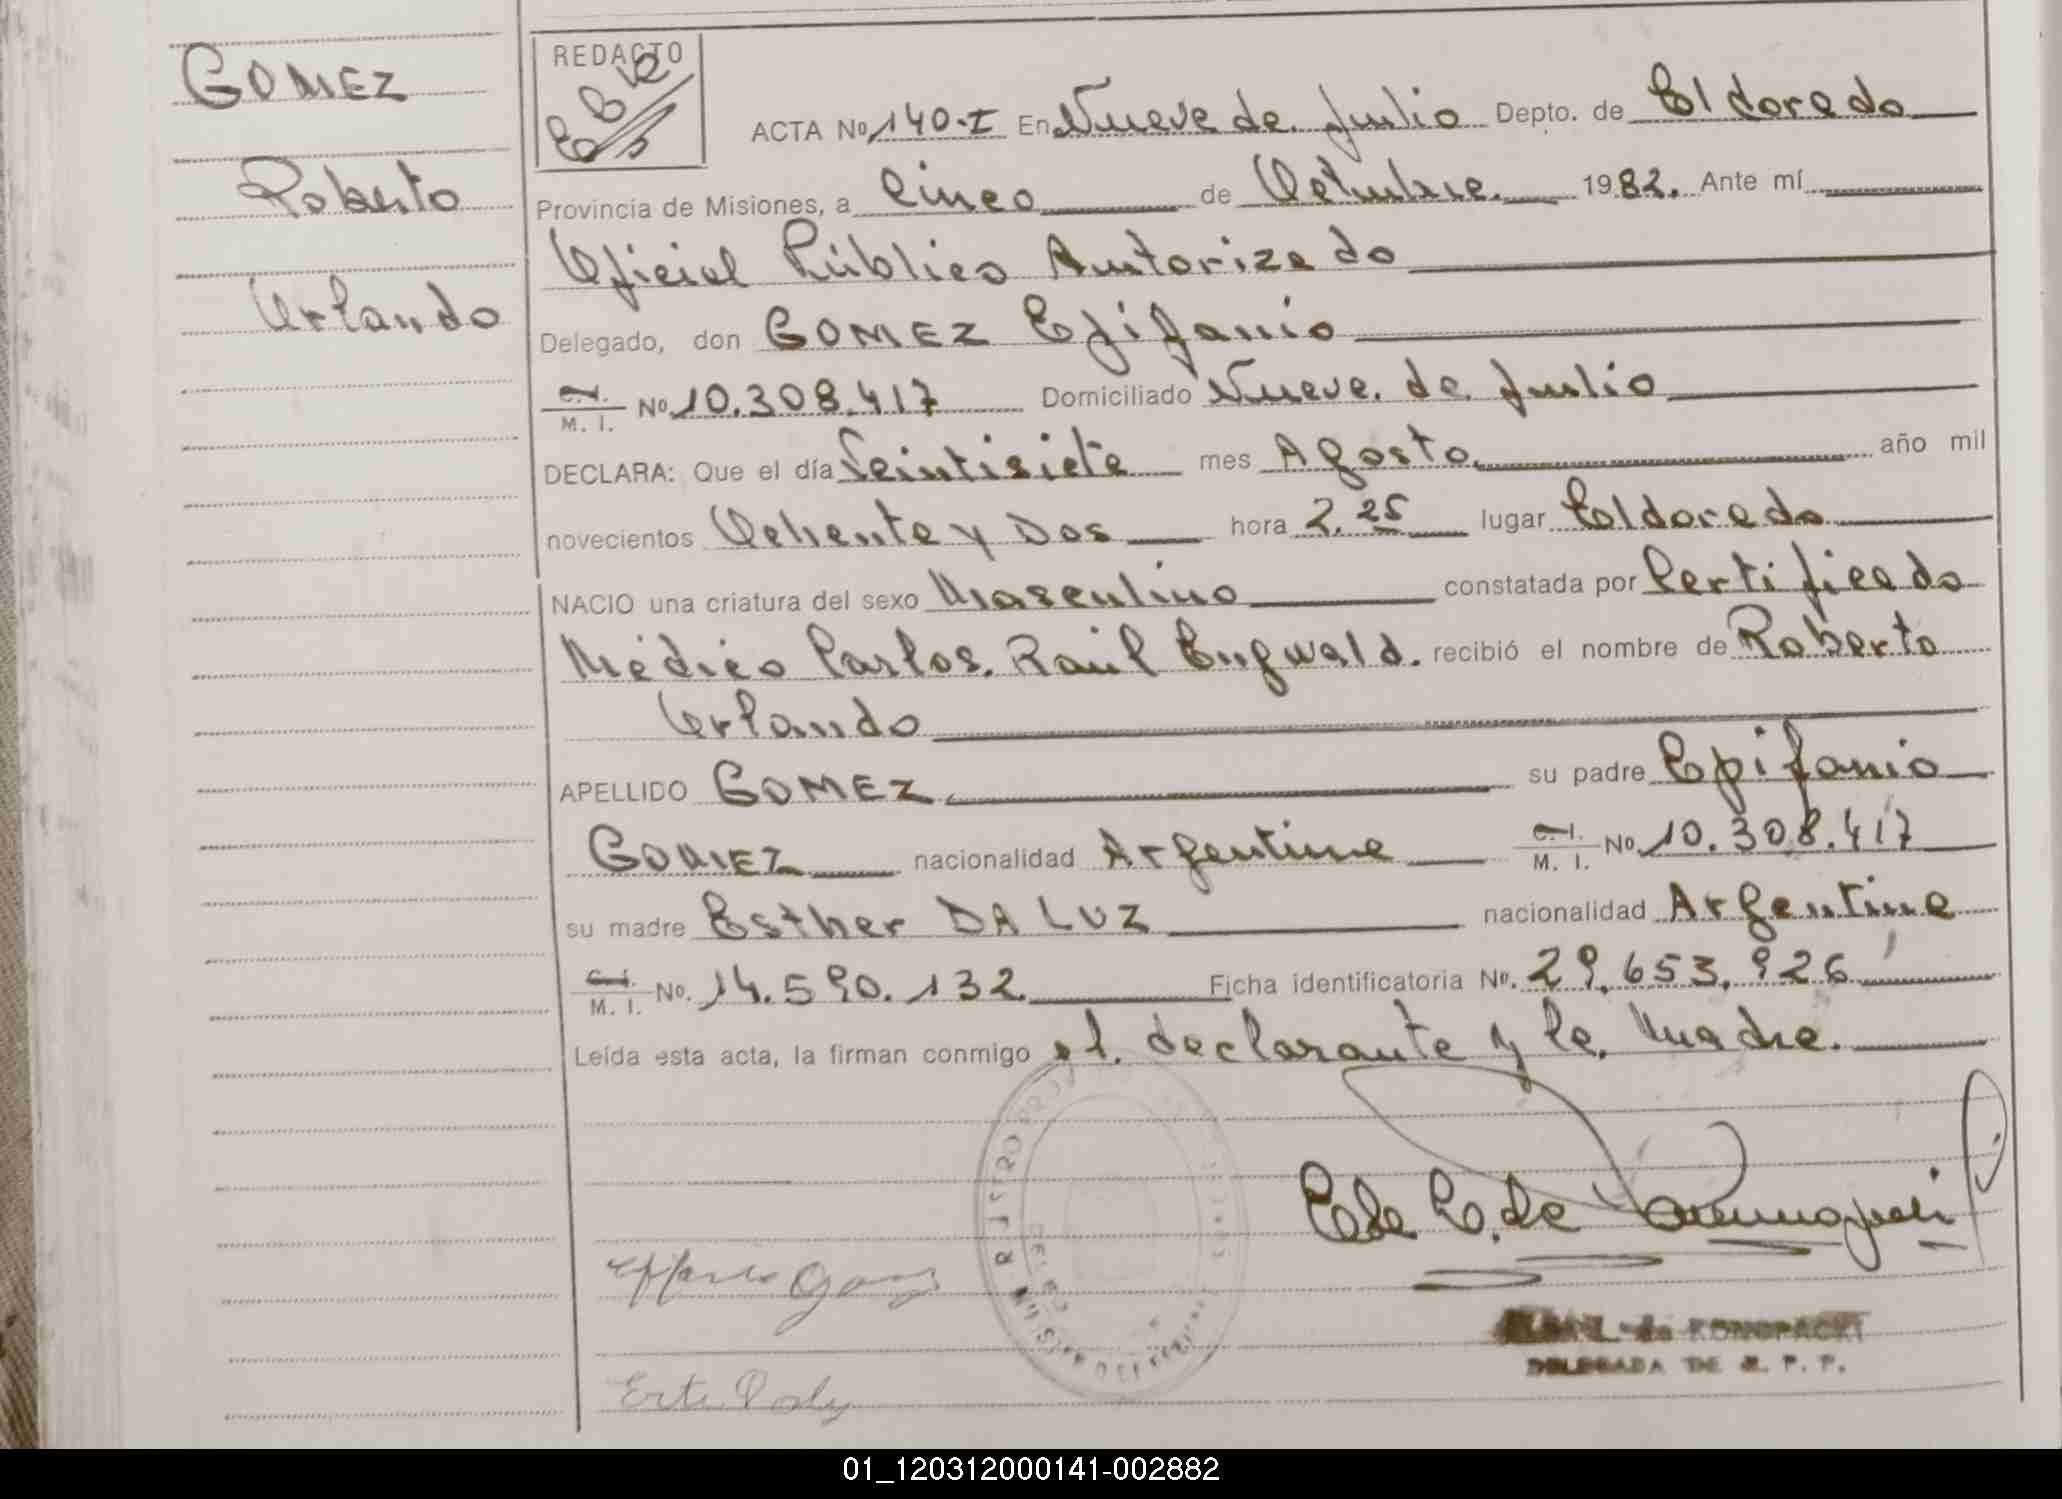 GOMEZ
Roberto
Orlando
REDACTO
ACTA No 140-I En Nueve de Julio Depto. de Eldorado
Provincia de Misiones, a Cinco de Octubre. 1982. Ante mí
Oficial Público Autorizado
Delegado, don GOMEZ Epifanio
C.I. M. I. No 10.308.417 Domiciliado Nueve de Julio
DECLARA: Que el día Veintisiete mes Agosto año mil
novecientos Ochenta y Dos hora 2.25 lugar Eldorado
NACIO una criatura del sexo Masculino constatada por Certificado
Médico Carlos Raúl Engwald. recibió el nombre de Roberto
Orlando
APELLIDO GOMEZ su padre Epifanio
GOMEZ nacionalidad Argentina C.I. M. I. No 10.308.417
su madre Esther DA LUZ nacionalidad Argentina
C.I. M. I. No. 14.590.132 Ficha identificatoria No. 29.653.926
Leída esta acta, la firman conmigo el declarante y la Madre.
de KONOPACKI
DELEGADA DE R. P. P.
01_120312000141-002882